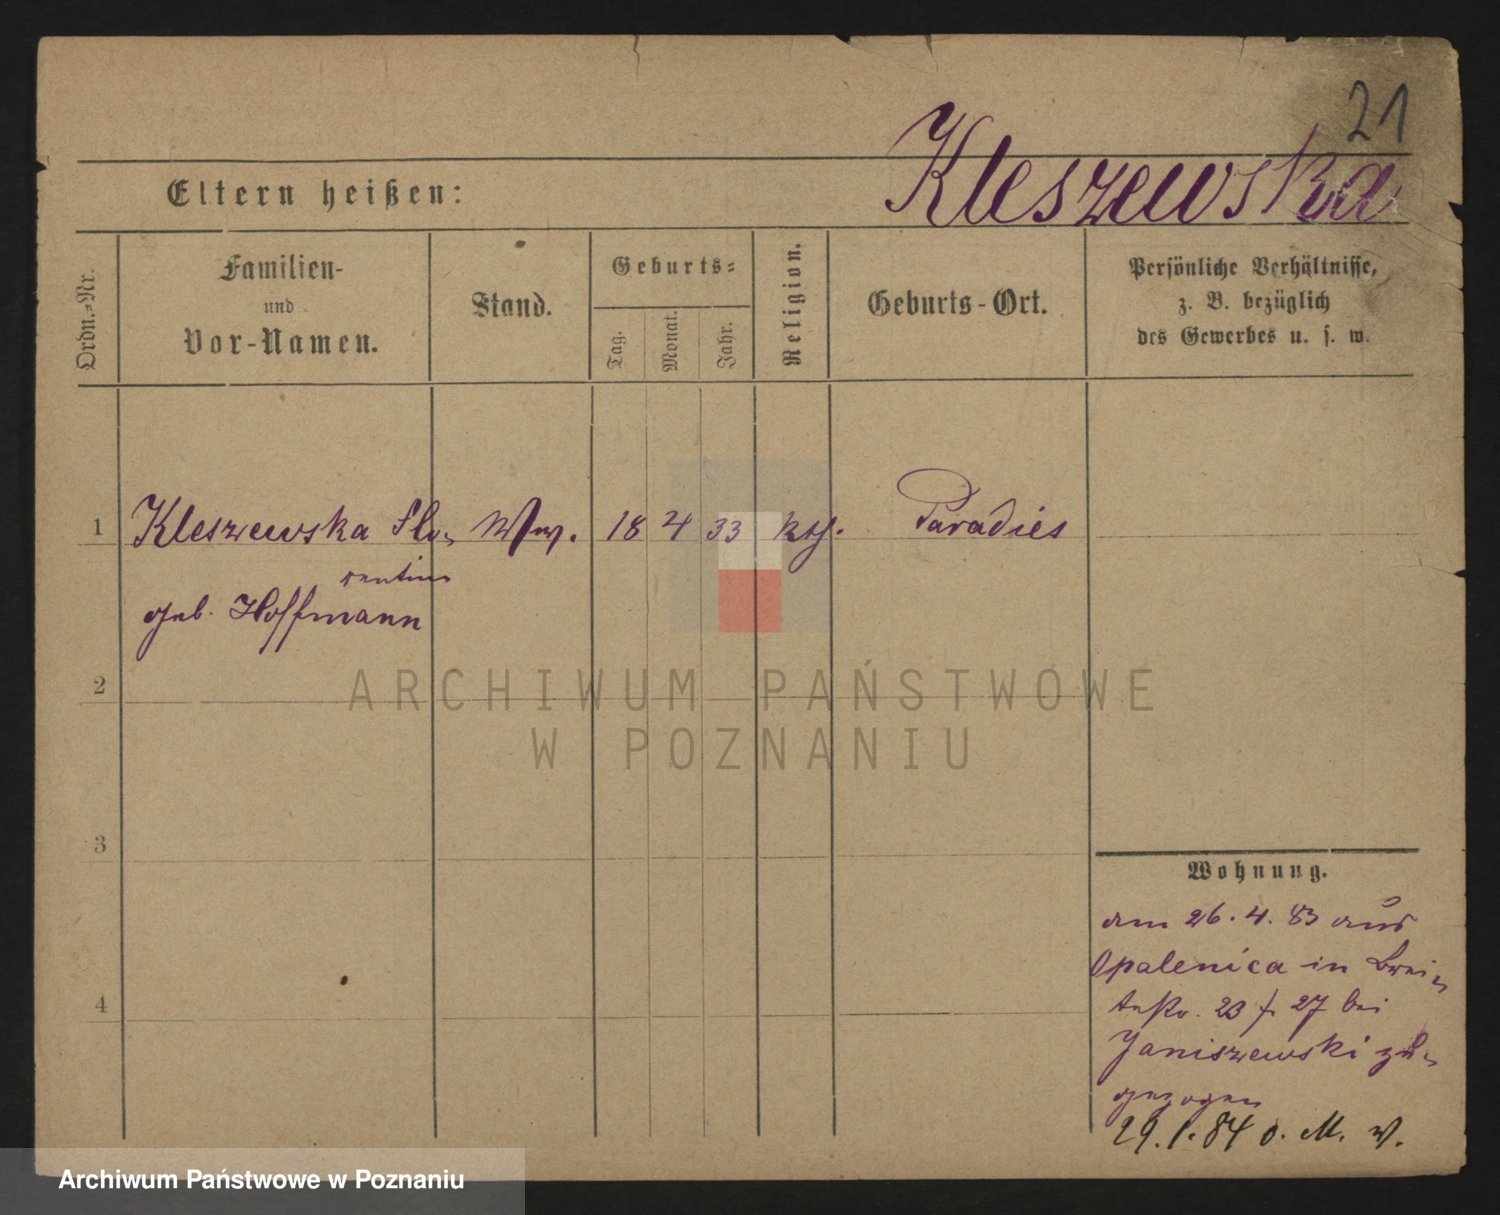 21
Kleszewska
Eltern heißen:
Ordn.-Nr.
Familien-
und
Vor-Namen.
Stand.
Geburts-
Tag.
Monat.
Jahr.
Religion.
Geburts-Ort.
Persönliche Verhältnisse,
z. B. bezüglich
des Gewerbes u. s. w.
1
Kleszewska Flo- Ww. 18 4 33 kth. Paradies
rentine
geb. Hoffmann
2
ARCHIWUM PAŃSTWOWE
W POZNANIU
3
4
Wohnung.
am 26. 4. 83 aus
Opalenica in Brei-
testr. 23 / 27 bei
Janiszewski zu-
gezogen
29. 1. 84 o. M. v.
Archiwum Państwowe w Poznaniu